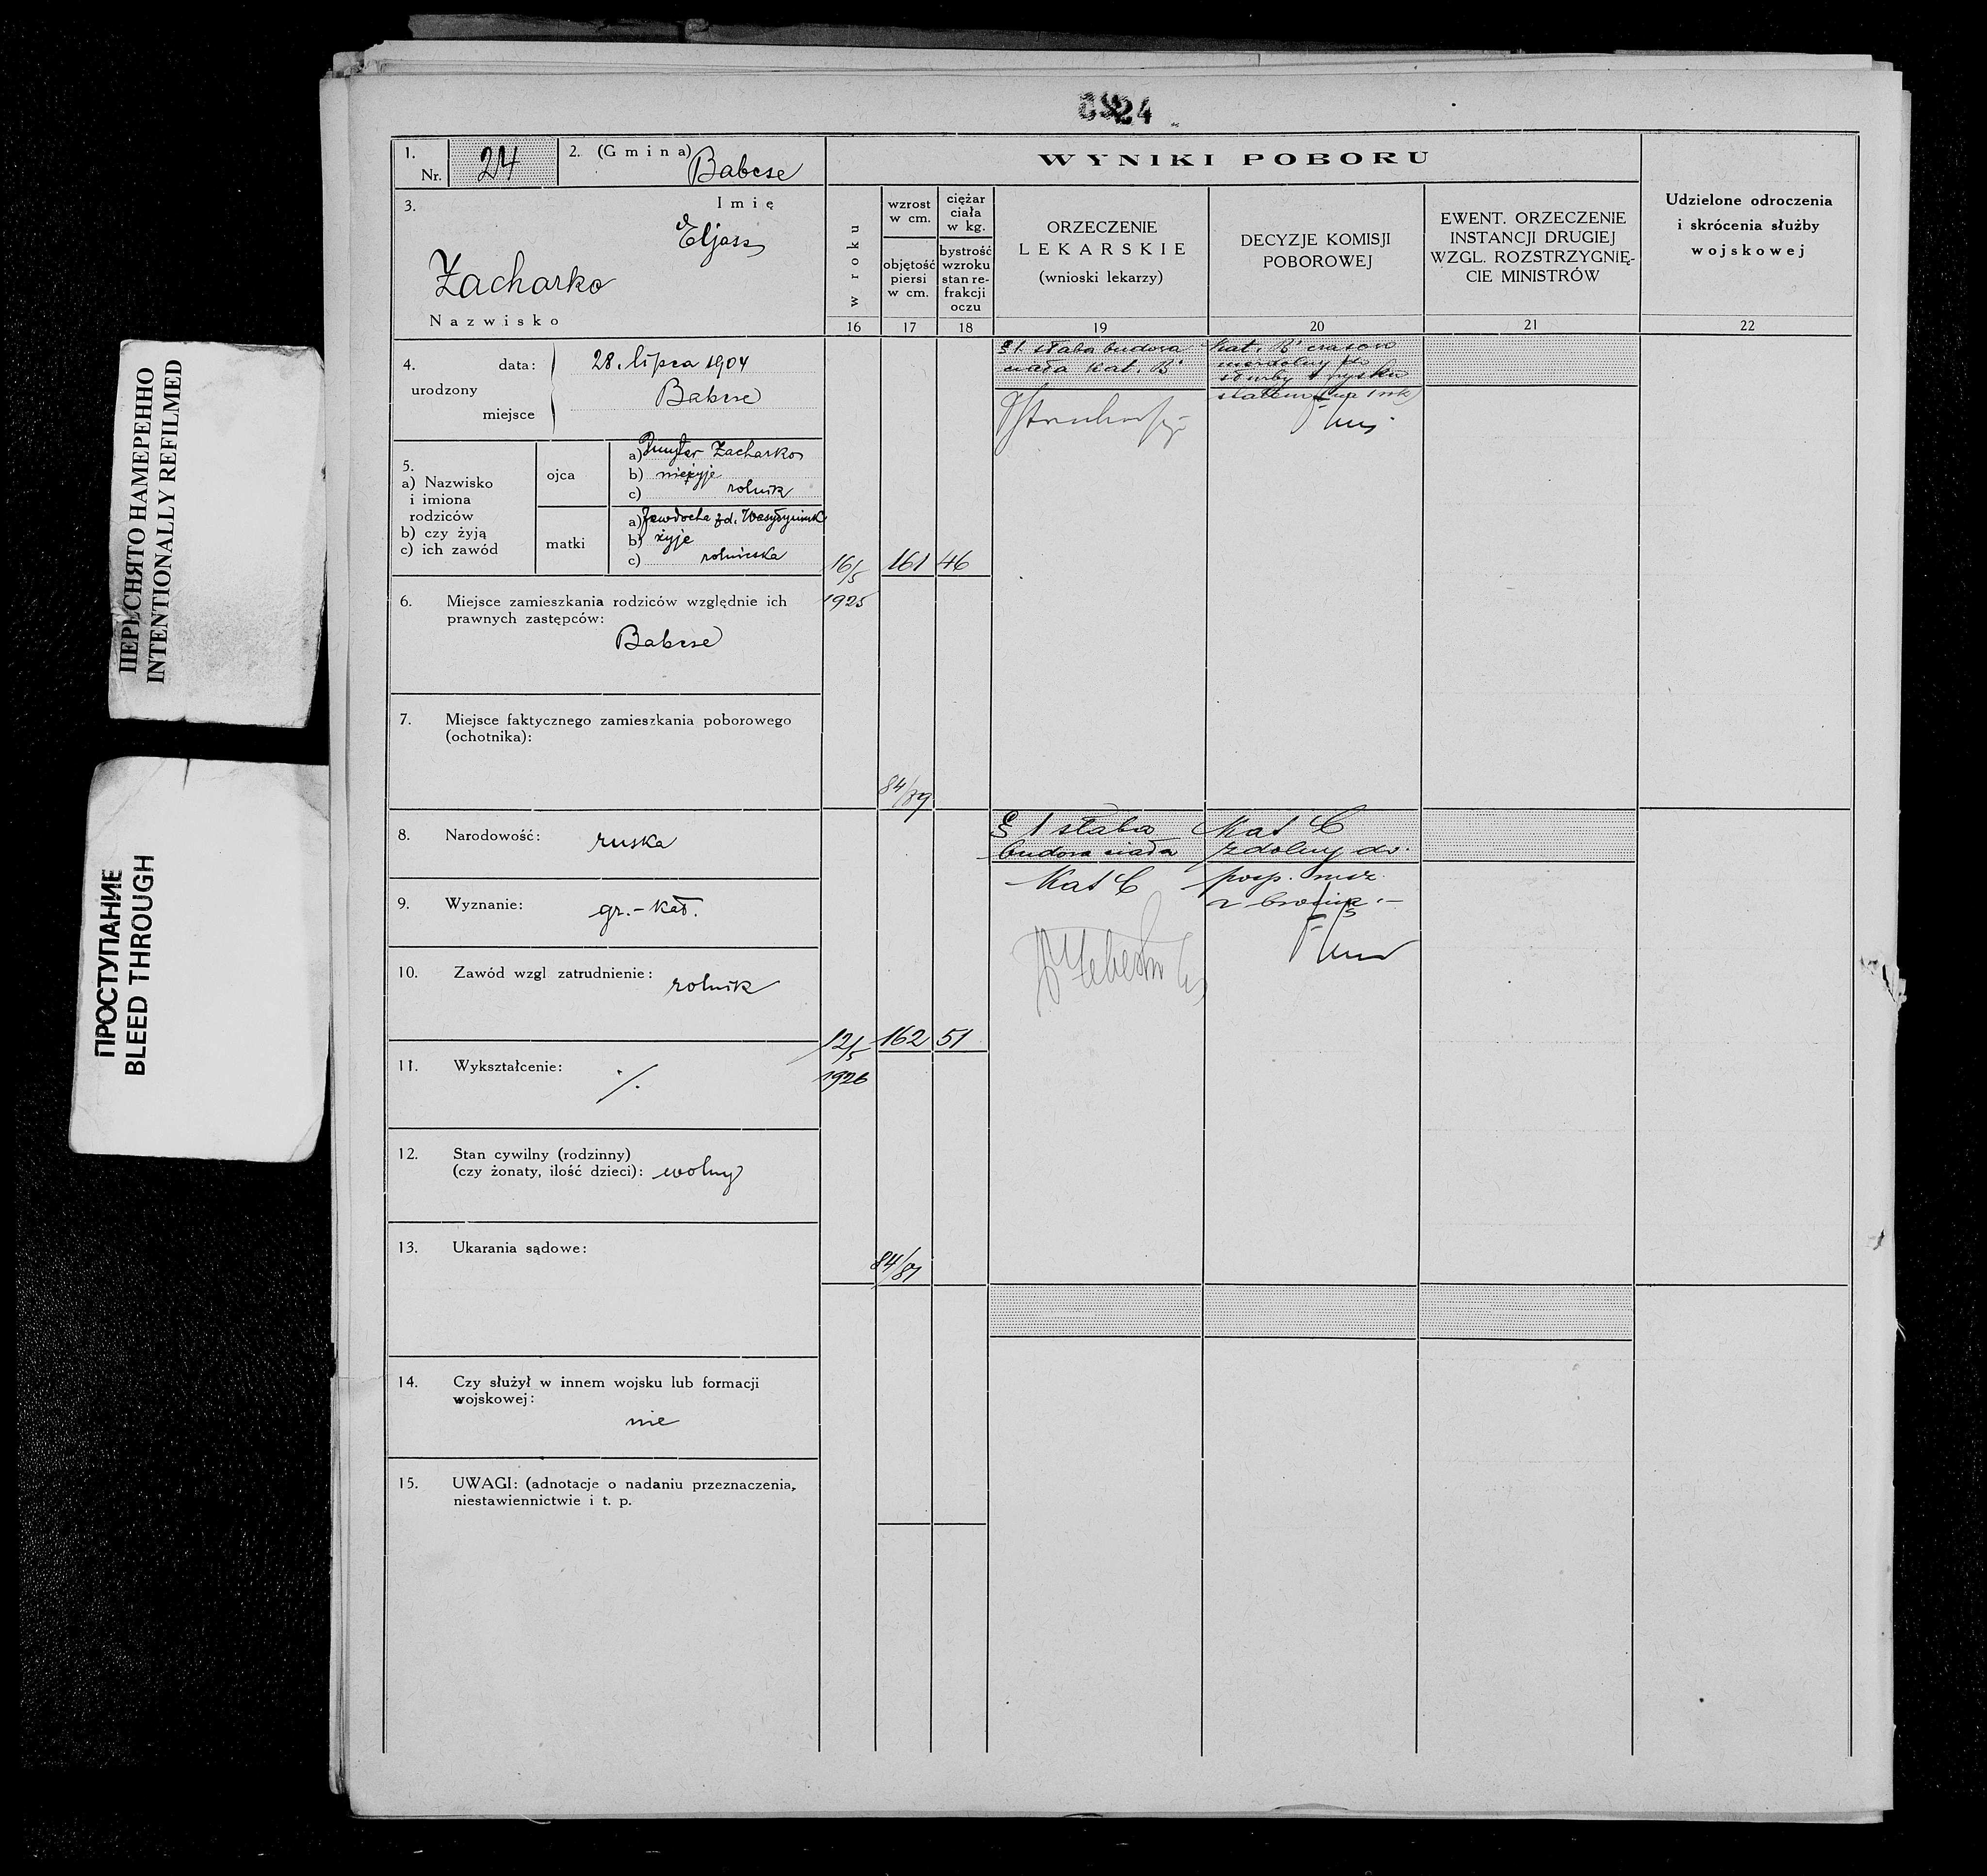 24
1.
Nr. 24
2. (Gmina) Babcse
3.
Imię
Eljasz
Zacharko
Nazwisko
WYNIKI POBORU
w roku
wzrost w cm.
objętość piersi w cm.
ciężar ciała w kg.
bystrość wzroku stan re-frakcji oczu
ORZECZENIE
LEKARSKIE
(wnioski lekarzy)
DECYZJE KOMISJI
POBOROWEJ
EWENT. ORZECZENIE
INSTANCJI DRUGIEJ
WZGL. ROZSTRZYGNIĘ-
CIE MINISTRÓW
Udzielone odroczenia
i skrócenia służby
wojskowej
16 17 18 19 20 21 22
4.
urodzony
data: 28. lipca 1904
miejsce Babcse
5.
a) Nazwisko
i imiona
rodziców
b) czy żyją
c) ich zawód
ojca
a) Dmyter Zacharko
b) nieżyje
c) rolnik
matki
a) Jewdocha zd.
b) żyje
c) rolniczka
6. Miejsce zamieszkania rodziców względnie ich
prawnych zastępców:
Babcse
7. Miejsce faktycznego zamieszkania poborowego
(ochotnika):
8. Narodowość: ruska
9. Wyznanie: gr.-kat.
10. Zawód wzgl zatrudnienie: rolnik
11. Wykształcenie: ./.
12. Stan cywilny (rodzinny)
(czy żonaty, ilość dzieci): wolny
13. Ukarania sądowe:
14. Czy służył w innem wojsku lub formacji
wojskowej:
nie
15. UWAGI: (adnotacje o nadaniu przeznaczenia,
niestawiennictwie i t. p.
16/5 161 46
1925
84/89
§ 1. słaba budowa
ciała kat. B
Kat. B czasowo
niezdolny do
służby
12/5 162 51
1926
84/87
§ 1 słaba
budowa ciała
Kat C
Kat C
zdolny do
posp. rusz.
z bronią.—
ПЕРЕСНЯТО НАМЕРЕННО
INTENTIONALLY REFILMED
ПРОСТУПАНИЕ
BLEED THROUGH